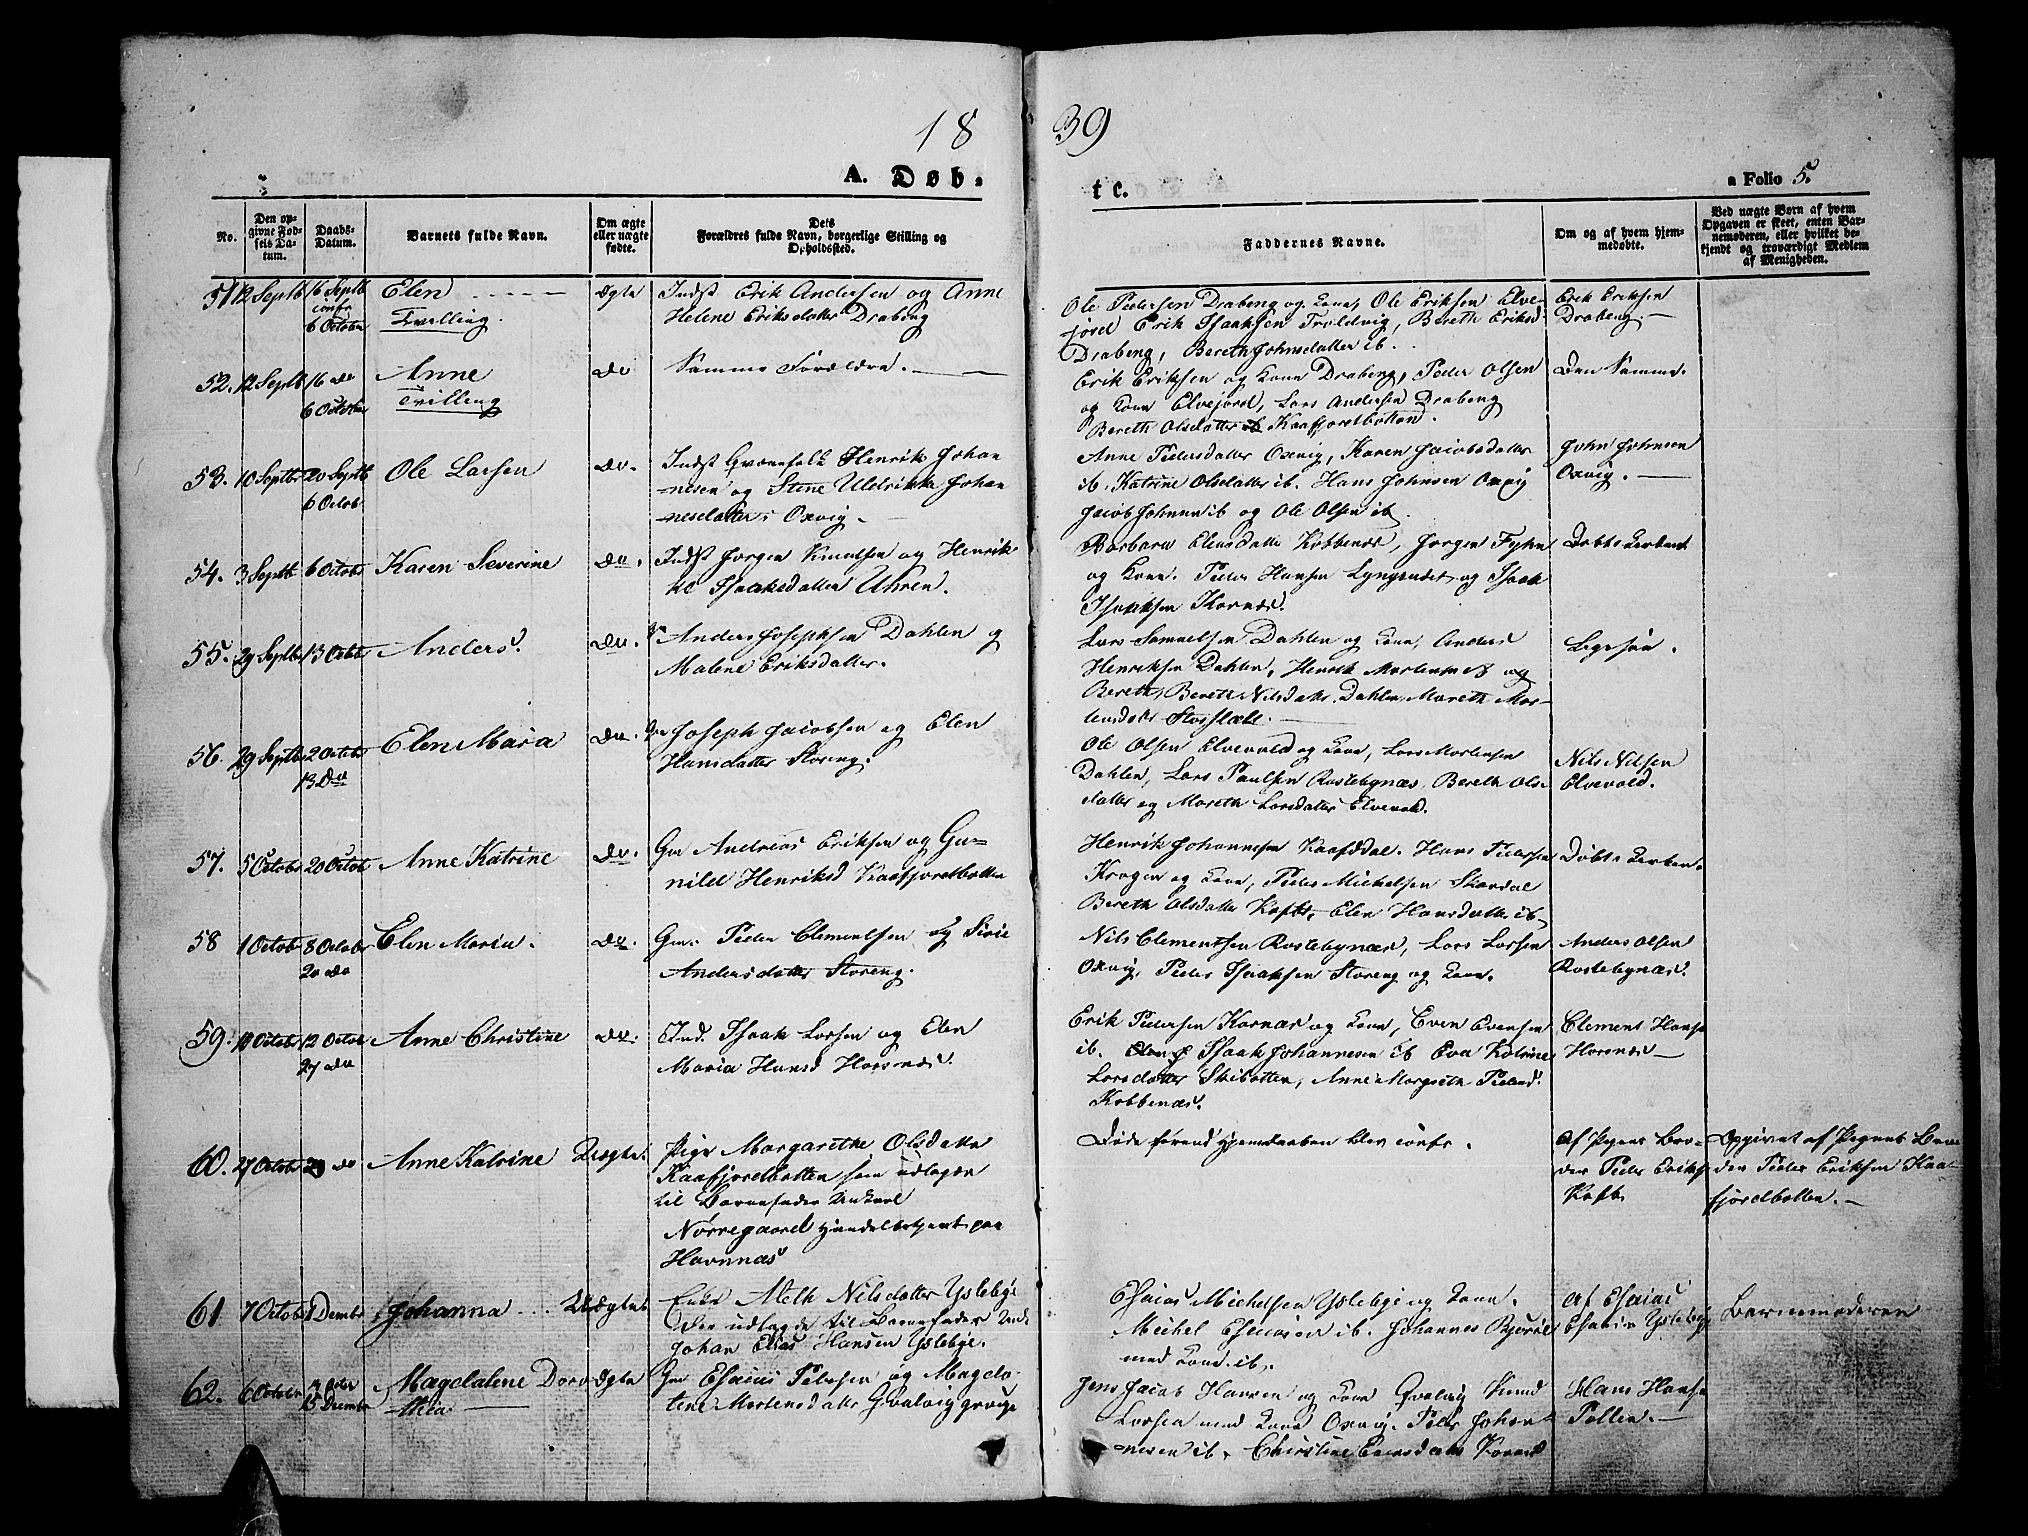 18 39
A. Døb. t c.
a Folio 5.
No.
Den op-
givne Fød-
sels Da-
tum.
Daabs-
Datum.
Barnets fulde Navn.
Om ægte
eller uægte
fødte.
Dets
Forældres fulde Navn, borgerlige Stilling og
Opholdssted.
Faddernes Navne.
Om og af hvem hjem-
medøbte.
Ved uægte Børn af hvem
Opgaven er skeet, enten Bar-
nemoderen, eller hvilket be-
kjendt og troværdigt Medlem
af Menigheden.
51 12 Septb 16 Septb Elen ægte Indst Erik Andersen og Anne
conf.
6 Octobr Tvilling. Helene Eriksdatter Drabeng
Ole Pedersen Drabeng og Kone, Ole Eriksen Elve-
jord Erik Isaaksen Troldvig, Bereth Eriksd
Drabeng, Bereth Johnsdatter ib.
Erik Eriksen
Drabeng.
52. 12 Septb 16 do Anne do Samme Forældre.
6 Octobr Tvilling
Erik Eriksen og Kone Drabeng, Peder Olsen
og Kone Elvejord, Lars Andersen Drabeng
Bereth Olsdatter Kaafjordbotten.
Den Samme.
53. 10 Septbr 20 Septb Ole Larsen do. Indst Henrik Johan
6 Octob nesen og Stine Uldrikke Johan
nesdatter Oxvig.
Anne Pedersdatter Oxvig, Karen Jacobsdatter
ib. Katrine Olsdatter ib. Hans Johnsen Oxvig
Jacob Johnsen ib og Ole Olsen ib.
John Johnsen
Oxvig.
54. 3 Septb 6 Octobr Karen Severine do. Indst Jørgen Knudsen og Henrik-
ke Isaaksdatter Uhren.
Barbara Elensdatter Kobbenæs, Jørgen Fyhn
og Kone. Peder Hansen Lyngseidet og Isaak
Isaaksen Kornæs.
55. 29 Septbr 13 Octbr Anders. do. Anders Josephsen Dahlen og
Malene Eriksdatter.
Lars Samuelsen Dahlen og Kone, Anders
Henriksen Dahlen, Henrik Mortensen og
Bereth, Bereth Nilsdatr. Dahlen Mareth Mor-
tensdatr
Ligesaa.
56. 29 Septbr 2 Octobr Elen Maria do. Joseph Jacobsen og Elen
13 Do Hansdatter Storeng.
Ole Olsen Elvevold og Kone, Lars Mortensen
Dahlen, Lars Paulsen Rostebynæs, Bereth Ols-
datter og Mareth Larsdatter Elvevold.
Nils Nilsen
Elvevold.
57. 5 Octobr 20 Octob Anne Katrine do. Gm Andreas Eriksen og Gu-
nild Henriksd Kaafjordbotten
Henrik Johannesen Kaafddal. Hans Pedersen
Krogen og Kone, Peder Michelsen Skardal
Bereth Olsdatter Kafbt, Elen Hansdatter ib
58 1 Octobr 8 Octobr Elen Maria. do. Gm. Peder Clementsen og Sirie
20 do Andersdatter Storeng.
Nils Clementsen Rostebynæs, Lars Larsen
Oxvig, Peder Isaaksen Storeng og Kone.
Anders Olsen
Rostebynæs.
59. 10 Octobr 12 Octob Anne Christine do. Ind. Isaak Larsen og Elen
27 do Maria Hansd Horsnæs.
Erik Pedersen Kornæs og Kone, Even Evensen
ib. Isaak Johannesen ib Eva Katrine
Larsdatter Skibotten, Anne Margreth Pedersd.
Kobbenæs.
Clement Hansen
Horsnæs
60. 27 Octobr 29 do Anne Katrine Uægte. Pige Margarethe Olsdatter
Kaafjordbotten som udlagde
til Barnefader Unkarl
Nørregaard Handelsbetjent paa
Havnnæs
Døde førend Hjemdaaben blev confr.
Af Pigens Bro-
der Peder Eriks
Kafbt.
Opgivet af Pigens Bro-
der Peder Eriksen Kaa-
fjordbotten.
61. 7 Octobr 1 Decembr Johanna Uægte Enke Meth Nilsdatter Yslebye
Der udlagde til Barnefader Unk
Johan Elias Hansen Yslebye.
Esaias Michelsen Yslebye og Kone.
Michel Esaiasen ib. Johannes
med Kone ib.
Af Esaias
Esaisen Yslebye
Barnemoderen
62. 6 Octobr Magdalene Doro- Ægte Gm Esaias Pedersen og Magda-
15 Decembr thea lene Mortensdatter Qvalvig
Jens Jacob Hansen og Kone Qvalvig Knud
Larsen med Kone Oxvig. Peder Johan-
nesen ib. Christine Kornæs
Hans Hansen
Pollen.